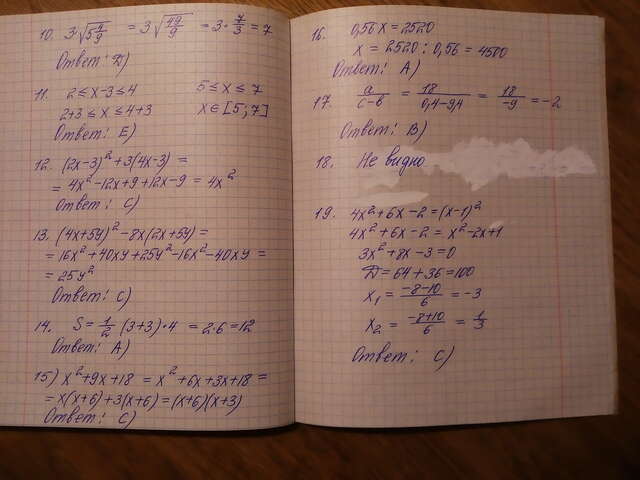 10. 3√5 4/9 = 3√49/9 = 3·7/3 = 7
Ответ: Д)
11. 2 ≤ x-3 ≤ 4 5 ≤ x ≤ 7
2+3 ≤ x ≤ 4+3 x ∈ [5; 7]
Ответ: E)
12. (2x-3)² + 3(4x-3) =
= 4x² - 12x + 9 + 12x - 9 = 4x²
Ответ: C)
13. (4x+5y)² - 8x(2x+5y) =
= 16x² + 40xy + 25y² - 16x² - 40xy =
= 25y²
Ответ: C)
14. S = 1/2 (3+3)·4 = 2·6 = 12
Ответ: A)
15) x² + 9x + 18 = x² + 6x + 3x + 18 =
= x(x+6) + 3(x+6) = (x+6)(x+3)
Ответ: C)
16. 0,56x = 2520
x = 2520 : 0,56 = 4500
Ответ: A)
17. a/c-b = 18/0,4-9,4 = 18/-9 = -2
Ответ: B)
18. Не видно
19. 4x² + 6x - 2 = (x-1)²
4x² + 6x - 2 = x² - 2x + 1
3x² + 8x - 3 = 0
D = 64 + 36 = 100
x₁ = -8-10/6 = -3
x₂ = -8+10/6 = 1/3
Ответ: C)